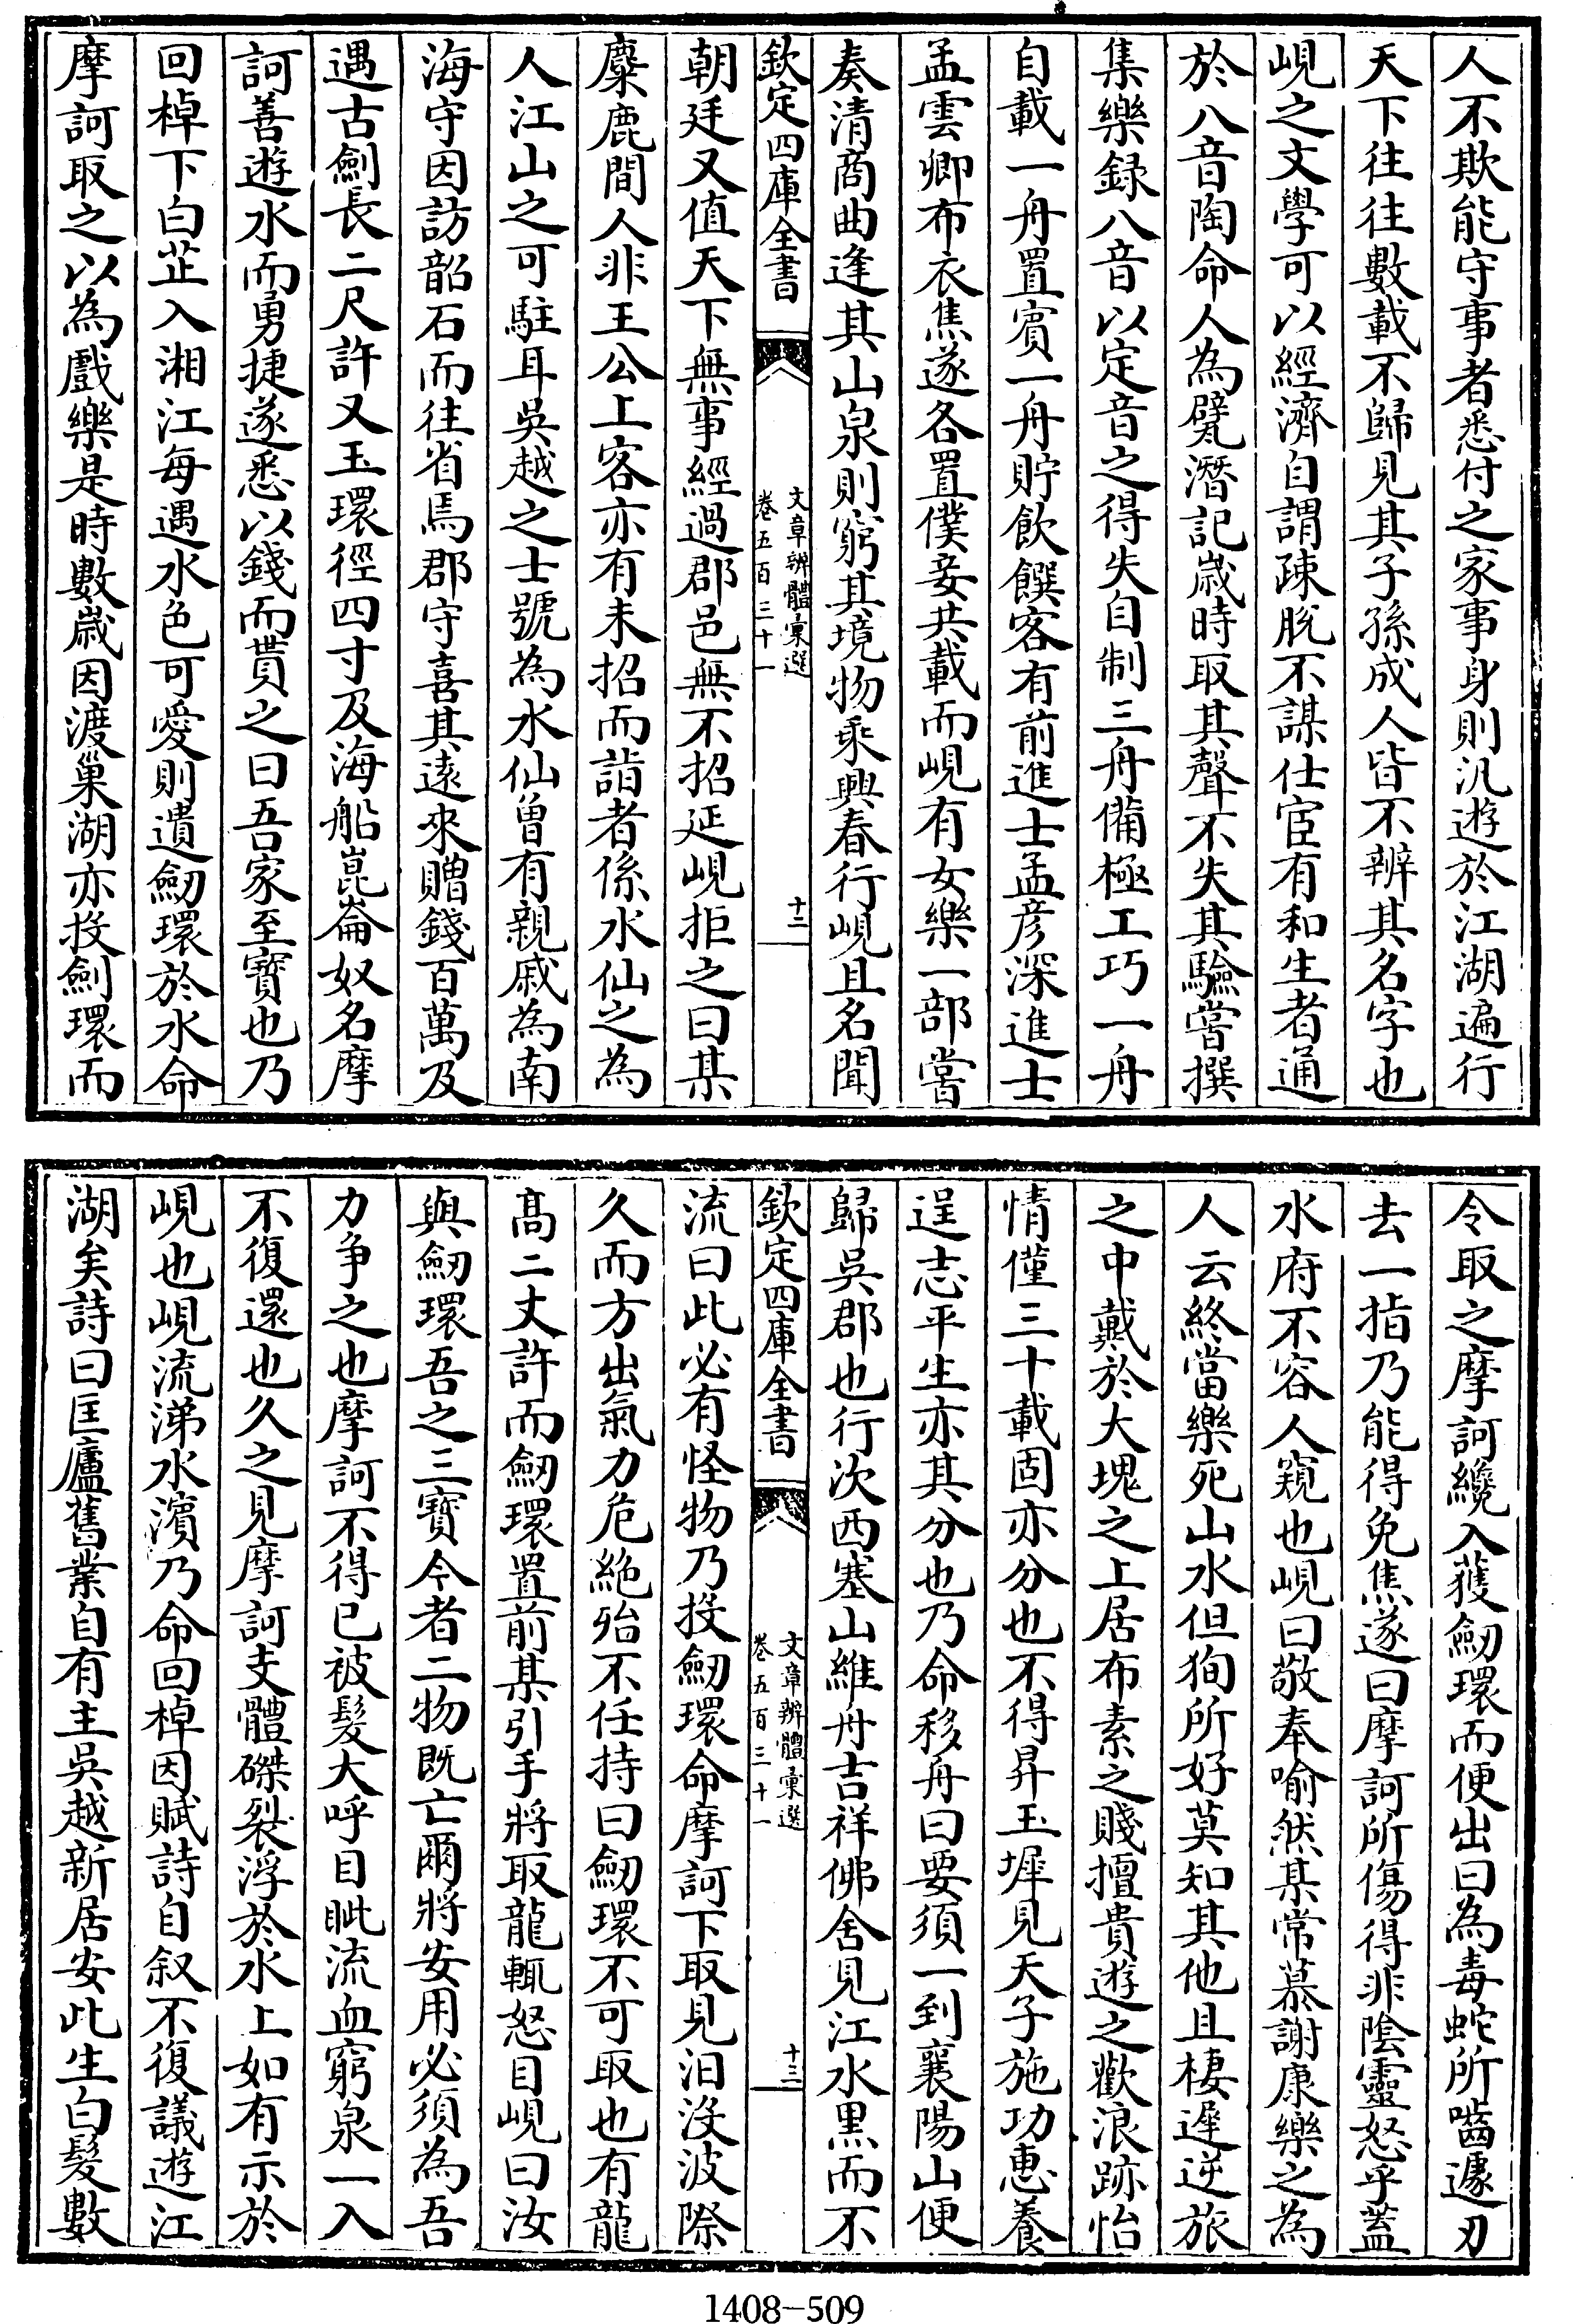 人不欺能守事者悉付之家事身則汎遊於江湖遍行
天下往往數載不歸見其子孫成人皆不辨其名字也
峴之文學可以經濟自謂疎脫不謀仕宦有和生者通
於八音陶命人為甓潛記歲時取其聲不失其驗嘗撰
集樂錄八音以定音之得失自制三舟備極工巧一舟
自載一舟置賓一舟貯飲饌客有前進士孟彥深進士
孟雲卿布衣焦遂各置僕妾共載而峴有女樂一部嘗
奏清商曲逢其山泉則窮其境物乘興春行峴且名聞
欽定四庫全書
文章辨體彙選
卷五百三十一
十二
朝廷又值天下無事經過郡邑無不招延峴拒之曰某
麋鹿間人非王公上客亦有未招而詣者係水仙之為
人江山之可駐耳吳越之士號為水仙曾有親戚為南
海守因訪韶石而往省焉郡守喜其遠來贈錢百萬及
遇古劍長二尺許又玉環徑四寸及海船崑崙奴名摩
訶善遊水而勇捷遂悉以錢而貰之曰吾家至寶也乃
回棹下白芷入湘江每遇水色可愛則遺劒環於水命
摩訶取之以為戲樂是時數歲因渡巢湖亦投劍環而
令取之摩訶纔入獲劒環而便出曰為毒蛇所嚙遽刃
去一指乃能得免焦遂曰摩訶所傷得非陰靈怒乎蓋
水府不容人窺也峴曰敬奉喻然某常慕謝康樂之為
人云終當樂死山水但狥所好莫知其他且棲遲逆旅
之中戴於大塊之上居布素之賤擅貴遊之歡浪跡怡
情僅三十載固亦分也不得昇玉墀見天子施功惠養
逞志平生亦其分也乃命移舟曰要須一到襄陽山便
歸吳郡也行次西塞山維舟吉祥佛舍見江水黑而不
欽定四庫全書
文章辨體彙選
卷五百三十一
十三
流曰此必有怪物乃投劒環命摩訶下取見汩沒波際
久而方出氣力危絕殆不任持曰劒環不可取也有龍
高二丈許而劒環置前某引手將取龍輒怒目峴曰汝
與劒環吾之三寶今者二物既亡爾將安用必須為吾
力爭之也摩訶不得已被髮大呼目眦流血窮泉一入
不復還也久之見摩訶支體磔裂浮於水上如有示於
峴也峴流涕水濱乃命回棹因賦詩自叙不復議遊江
湖矣詩曰匡廬舊業自有主吳越新居安此生白髮數
1408-509